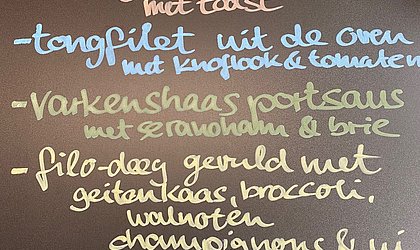 met toast
-tongfilet uit de oven
met knoflook & tomaten
-varkenshaas portsaus
met seranoham & brie
-filo-deeg gevuld met
geitenkaas, broccoli,
walnoten
champignons & ui